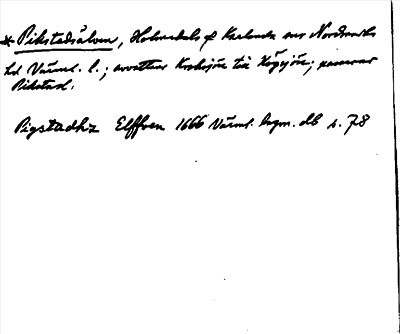 * Pikstadsälven, Holmedals o Karlanda snr Nordmarks
hd Värml. l.; avvattnar till Högsjön; passerar
Pikstad.
Pigstadhz Elffven 1666 Värml. lagm. db s. 78